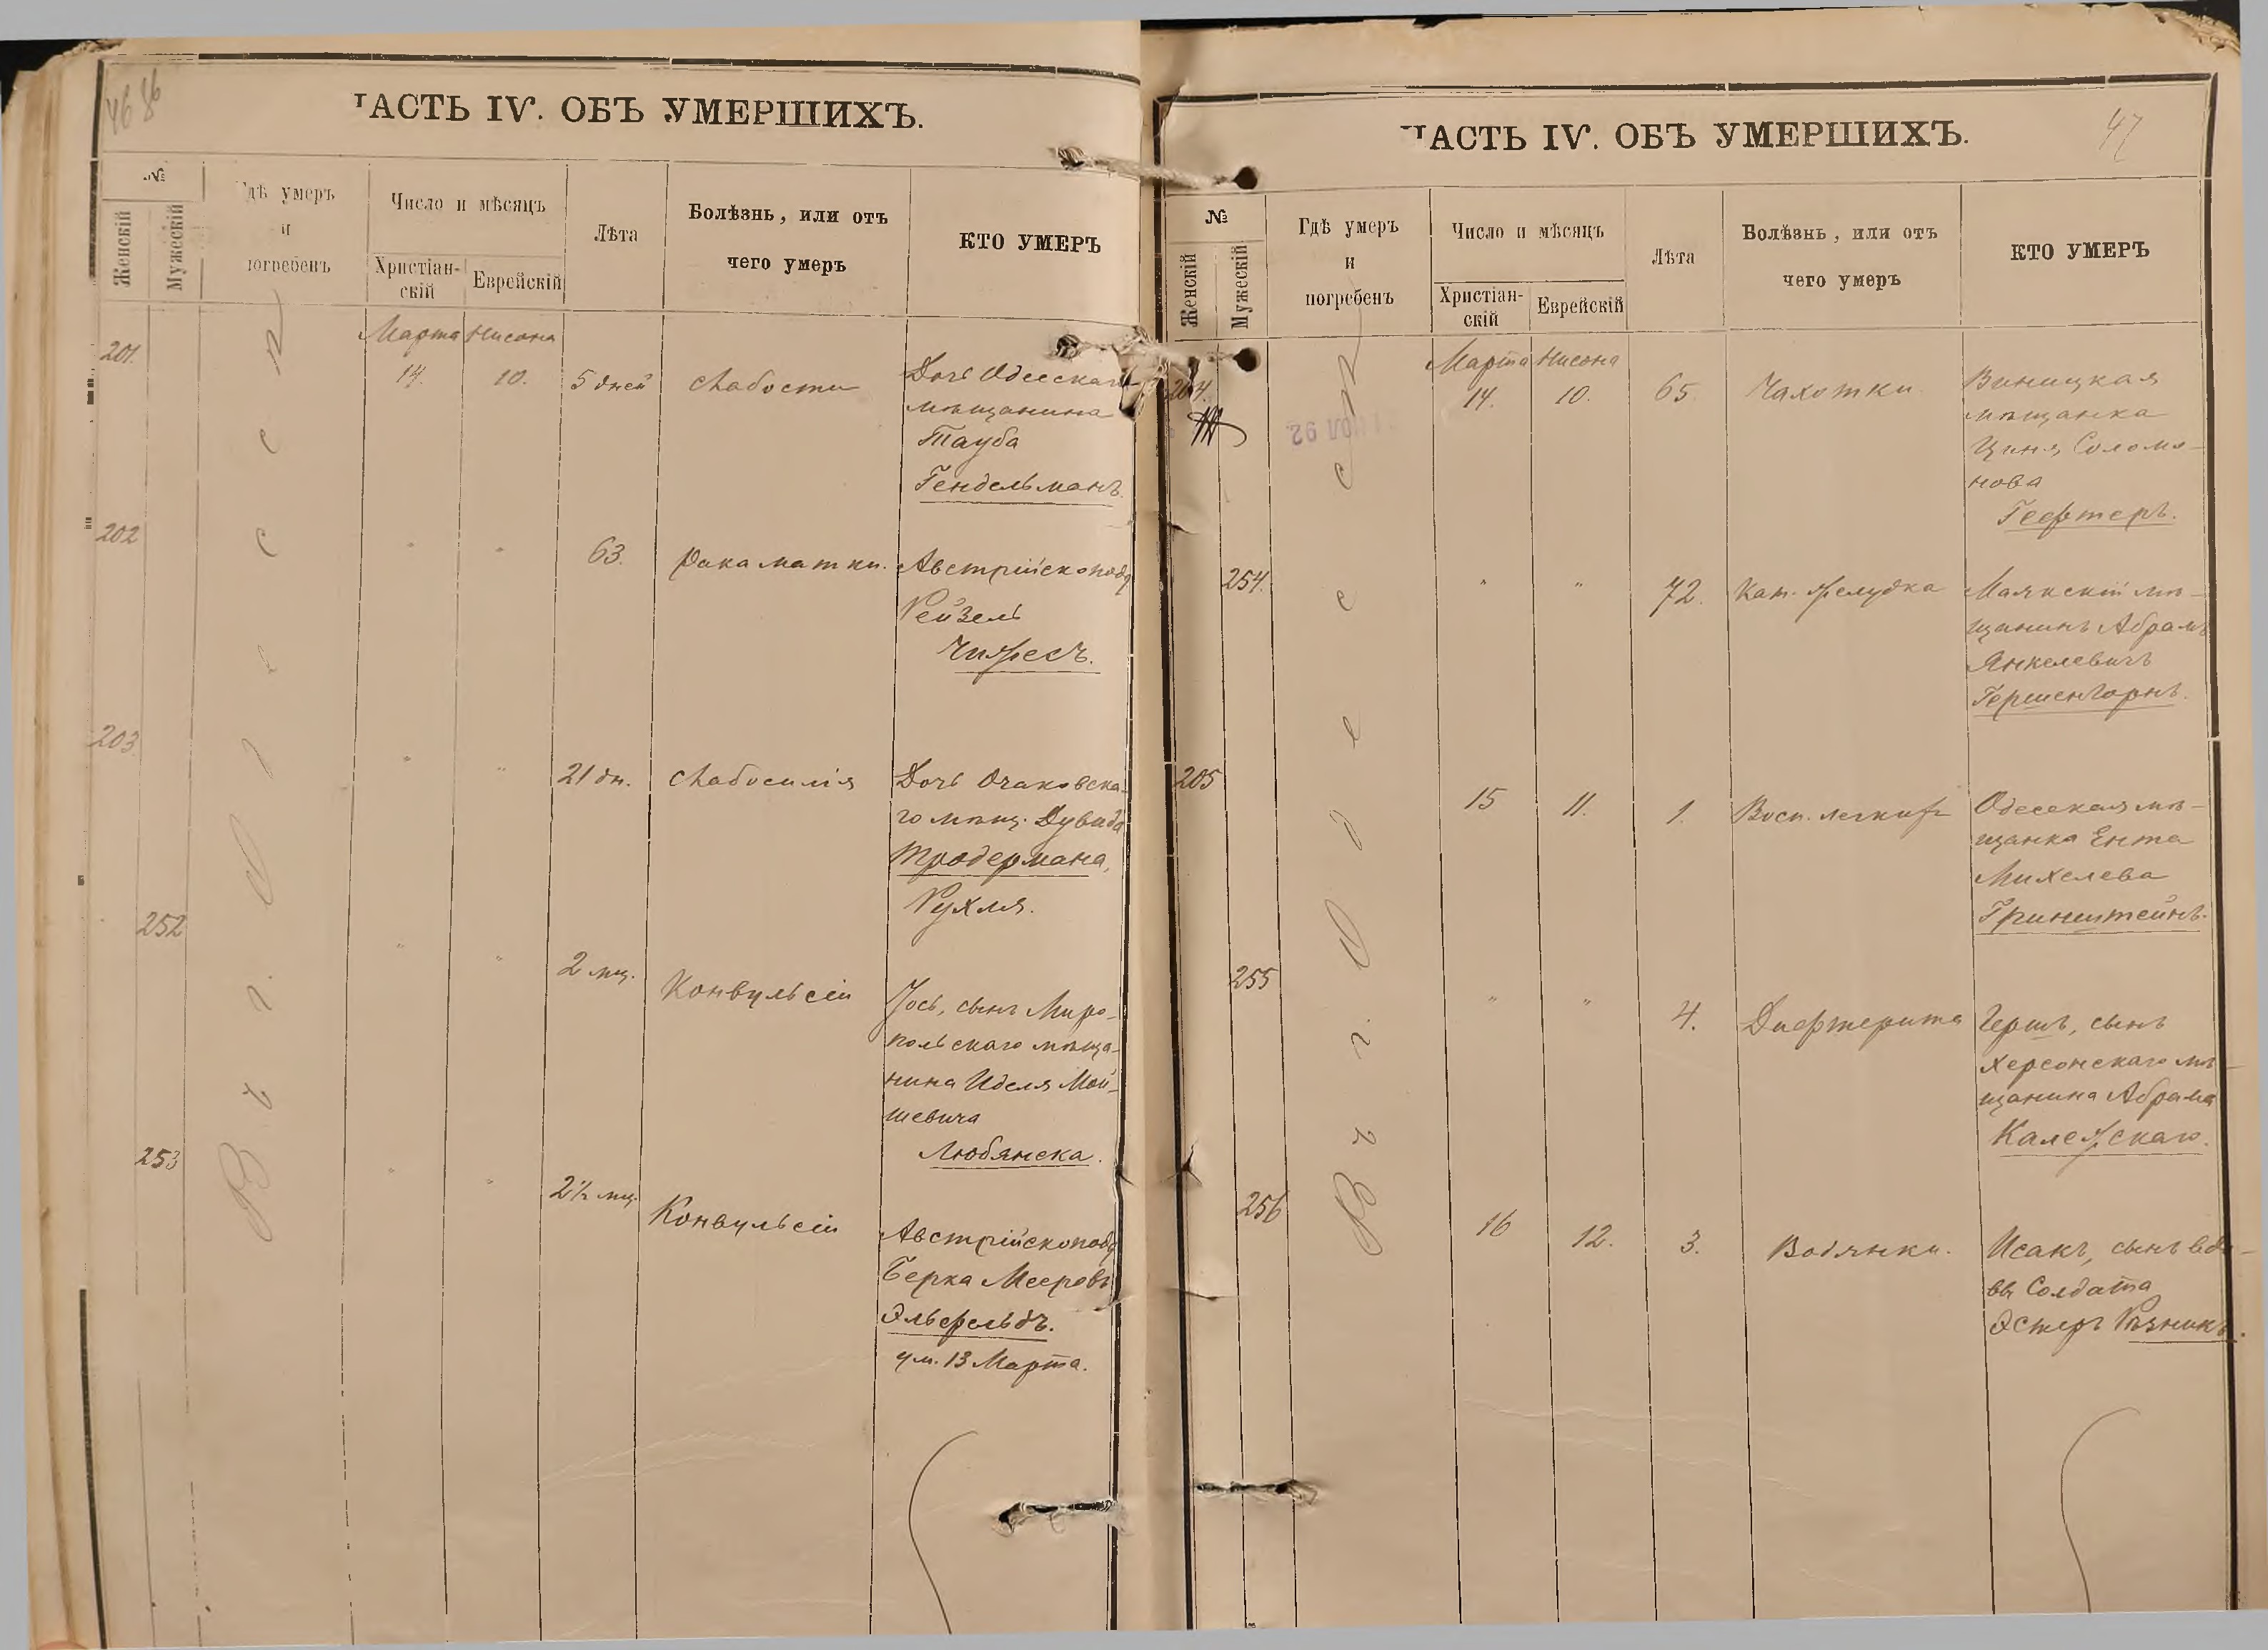 46 86
ЧАСТЬ IV. ОБЪ УМЕРШИХЪ.
№
Женскій
Мужескій
Гдѣ умеръ
и
погребенъ
Число и мѣсяцъ
Христіан-
скій
Еврейскій
Лѣта
Болѣзнь, или отъ
чего умеръ
КТО УМЕРЪ
Въ г. Одессѣ
Марта Нисона
201. 14. 10. 5 дней слабости Дочь Одесскаго
мѣщанина
Тауба
Гендельманъ.
202 " " 63. Рака матки. Австрійскопод
Рейзель
Чижесъ.
203. " " 21 дн. слабосилія Дочь Очаковска-
го мѣщ. Дувида
Тродермана,
Рухля.
252 " " 2 мц. Конвульсіи Іось, сынъ Миро-
польскаго мѣща-
нина Иделя Мой-
шевича
Любянска.
253 " " 2½ мц. Конвульсіи Австрійскопод
Берка Мееровъ
Эльфельдъ.
ум. 13 Марта.
47
ЧАСТЬ IV. ОБЪ УМЕРШИХЪ.
№
Женскій
Мужескій
Гдѣ умеръ
и
погребенъ
Число и мѣсяцъ
Христіан-
скій
Еврейскій
Лѣта
Болѣзнь, или отъ
чего умеръ
КТО УМЕРЪ
Въ г. Одессѣ
Марта Нисона
204. 14. 10. 65. Чахотки Виницкая
мѣщанка
Циня Соломо-
нова
Гефтеръ.
254. " " 72. Кат. желудка Маякскій мѣ-
щанинъ Абрамъ
Янкелевичъ
Гершенгорнъ.
205 15 11. 1. Восп. легкихъ Одесская мѣ-
щанка Ента
Михелева
Гринштейнъ.
255 " " 4. Дифтерита Гершъ, сынъ
Херсонскаго мѣ-
щанина Абрама
Калежскаго.
256 16 12. 3. Водянки. Исакъ, сынъ вдо-
вы Солдата
Эстеръ Рѣзникъ.